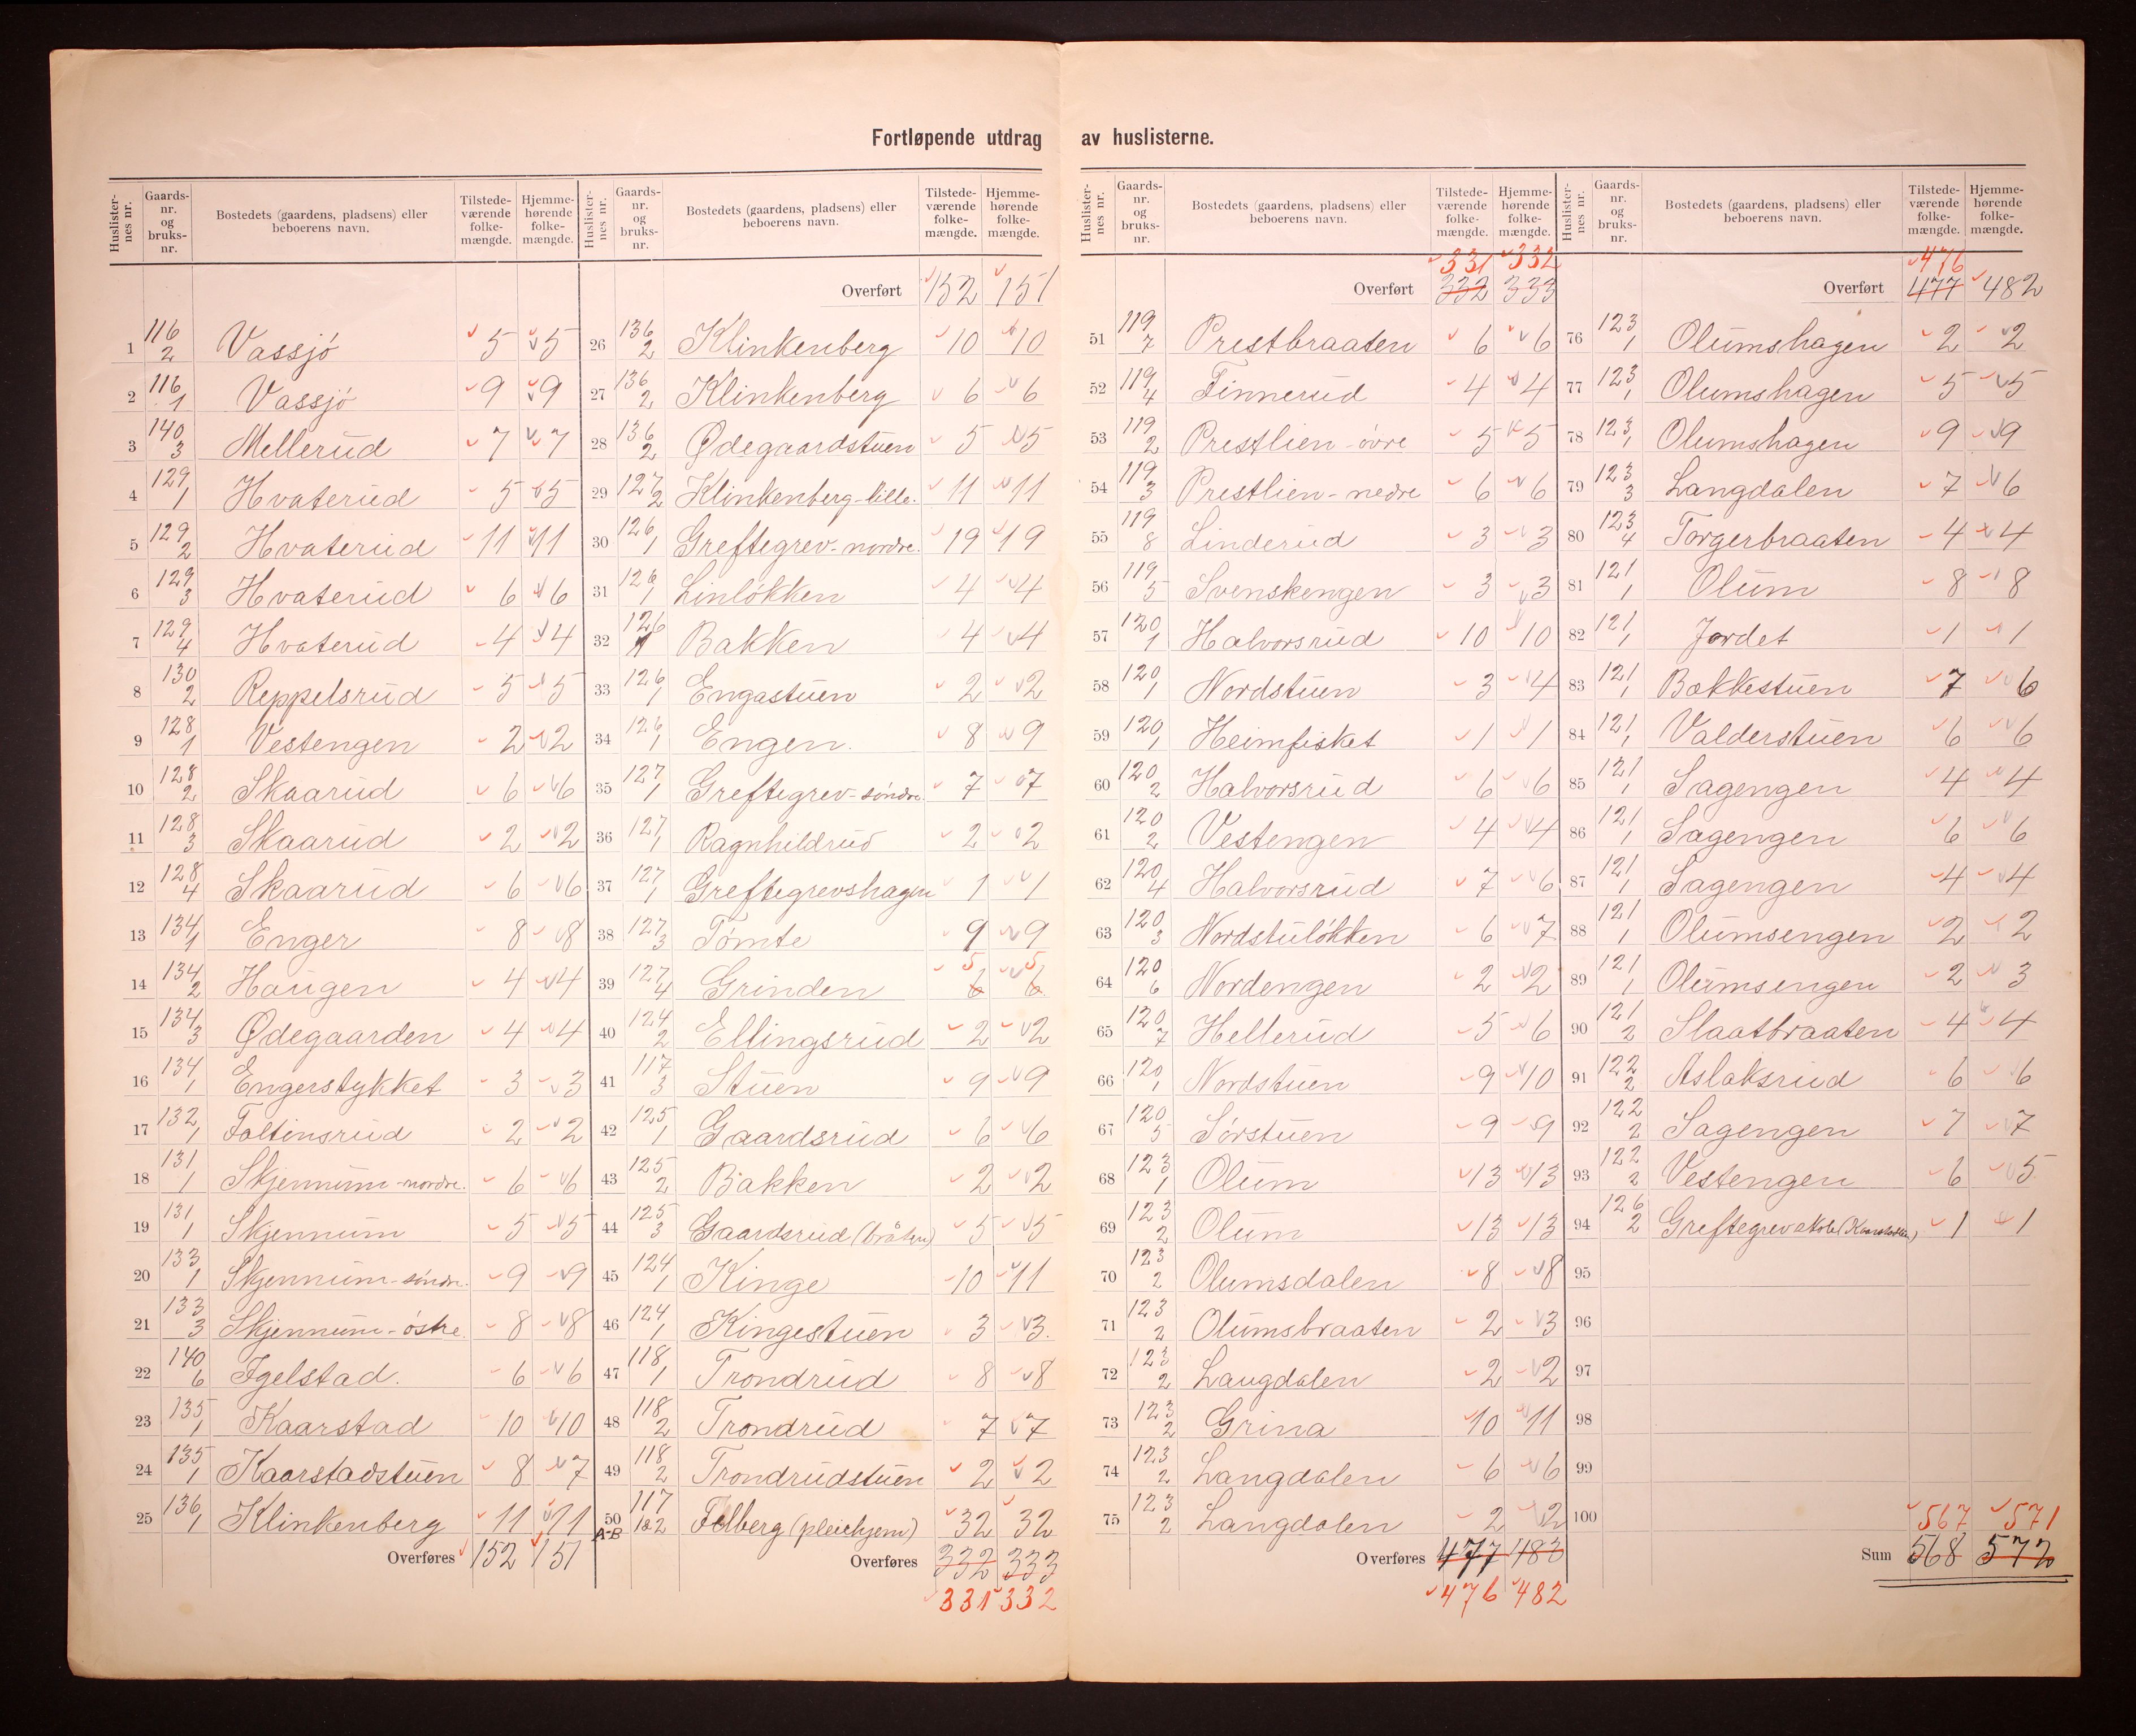 Fortløpende utdrag av huslisterne.
Huslisternes nr. | Gaards-nr. og bruks-nr. | Bostedets (gaardens, pladsens) eller beboerens navn. | Tilstedeværende folkemængde. | Hjemmehørende folkemængde.
1 116/2 Vassjó 5 5
2 116/1 Vassjó 9 9
3 140/3 Mellerud 7 7
4 129/1 Hvaterud 5 5
5 129/2 Hvaterud 11 11
6 129/3 Hvaterud 6 6
7 129/4 Hvaterud 4 4
8 130/2 Reppelsrud 5 5
9 128/1 Vestengen 2 2
10 128/2 Skaarud 6 6
11 128/3 Skaarud 2 2
12 128/4 Skaarud 6 6
13 134/1 Enger 8 8
14 134/2 Haugen 4 4
15 134/3 Ødegaarden 4 4
16 134/1 Engerstykket 3 3
17 132/1 Foltinsrud 2 2
18 131/1 Skjennum-nordre. 6 6
19 131/1 Skjennum 5 5
20 133/1 Skjennum-sóndre. 9 9
21 133/3 Skjennum-óstre. 8 8
22 140/6 Igelstad. 6 6
23 135/1 Kaarstad 10 10
24 135/1 Kaarstadstuen 8 7
25 136/1 Klinkenberg 11 11
Overføres 152 151
Huslisternes nr. | Gaards-nr. og bruks-nr. | Bostedets (gaardens, pladsens) eller beboerens navn. | Tilstedeværende folkemængde. | Hjemmehørende folkemængde.
Overført 152 151
26 136/2 Klinkenberg 10 10
27 136/2 Klinkenberg 6 6
28 136/2 Ødegaardstuen 5 5
29 127/2 Klinkenberg-lille. 11 11
30 126/1 Greftegrev-nordre. 19 19
31 126/1 Linlókken 4 4
32 126/1 Bakken 4 4
33 126/1 Engastuen 2 2
34 126/1 Engen. 8 9
35 127/1 Greftegrev-sóndre. 7 7
36 127/1 Ragnhildrud 2 2
37 127/1 Greftegrevshagen 1 1
38 127/3 Tómte 9 9
5 5
39 127/4 Grinden 6 6
40 124/2 Ellingsrud 2 2
41 117/3 Stuen 9 9
42 125/1 Gaardsrud 6 6
43 125/2 Bakken 2 2
44 125/3 Gaardsrud (bråten) 5 5
45 124/1 Kinge 10 11
46 124/1 Kingestuen 3 3.
47 118/1 Trondrud 8 8
48 118/2 Trondrud 7 7
49 118/2 Trondrudstuen 2 2
50 A-B 117/1&2 Folberg (pleiehjem) 32 32
Overføres 332 333
331 332
Huslisternes nr. | Gaards-nr. og bruks-nr. | Bostedets (gaardens, pladsens) eller beboerens navn. | Tilstedeværende folkemængde. | Hjemmehørende folkemængde.
331 332
Overført 332 333
51 119/7 Prestbraaten 6 6
52 119/4 Finnerud 4 4
53 119/2 Prestlien-óvre 5 5
54 119/3 Prestlien-nedre 6 6
55 119/8 Linderud 3 3
56 119/5 Svenskengen 3 3
57 120/1 Halvorsrud 10 10
58 120/1 Nordstuen 3 4
59 120/1 Heimfisket 1 1
60 120/2 Halvorsrud 6 6
61 120/2 Vestengen 4 4
62 120/4 Halvorsrud 7 6
63 120/3 Nordstulókken 6 7
64 120/6 Nordengen 2 2
65 120/7 Hellerud 5 6
66 120/1 Nordstuen 9 10
67 120/5 Sórstuen 9 9
68 123/1 Olum 13 13
69 123/2 Olum 13 13
70 123/2 Olumsdalen 8 8
71 123/2 Olumsbraaten 2 3
72 123/2 Langdalen 2 2
73 123/2 Grina 10 11
74 123/2 Langdalen 6 6
75 123/2 Langdalen 2 2
Overføres 477 483
476 482
Huslisternes nr. | Gaards-nr. og bruks-nr. | Bostedets (gaardens, pladsens) eller beboerens navn. | Tilstedeværende folkemængde. | Hjemmehørende folkemængde.
476
Overført 477 482
76 123/1 Olumshagen 2 2
77 123/1 Olumshagen 5 5
78 123/1 Olumshagen 9 9
79 123/3 Langdalen 7 6
80 123/4 Torgerbraaten 4 4
81 121/1 Olum 8 8
82 121/1 Jordet 1 1
83 121/1 Bakkestuen 7 6
84 121/1 Valderstuen 6 6
85 121/1 Sagengen 4 4
86 121/1 Sagengen 6 6
87 121/1 Sagengen 4 4
88 121/1 Olumsengen 2 2
89 121/1 Olumsengen 2 3
90 121/2 Slaatbraaten 4 4
91 122/2 Aslaksrud 6 6
92 122/2 Sagengen 7 7
93 122/2 Vestengen 6 5
94 126/2 Greftegrevskole 1 1
95
96
97
98
99
100
567 571
Sum 568 572